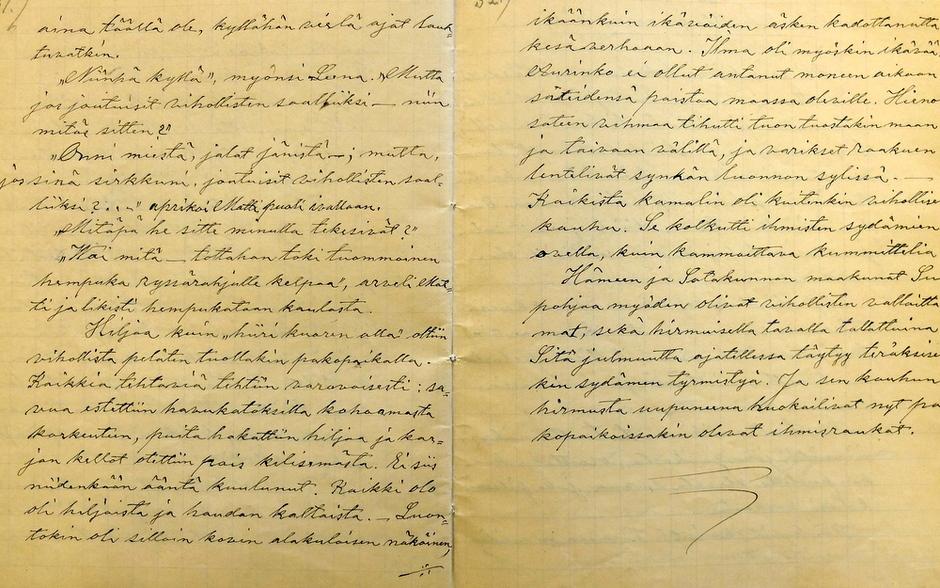 aina täällä ole, kyllähän vielä ajat laus-
tuvatkin.
„Niinhä kyllä", myönsi Leena. „Mutta
jos joutuisit vihollisten saaliiksi — niin
mitäs sitten?"
„Onni miestä, jalat jänistä —; mutta,
jos sinä sirkkuni, joutuisit vihollisten saa-
liiksi? . . –" aprikoi Matti puoli ivallaan.
„Mitäpä he sitte minulla tekisivät?"
„Wai mitä — tottahan toki tuommoinen
hempuka ryssärahjulle kelpaa", arveli Mat-
ti ja likisti hempukataan kaulasta.
Hiljaa kuin „hiiri kuoren alla" oltiin
vihollista peläten tuollakin pakopaikalla.
Kaikkia tehtäviä tehtiin varovaisesti: sa-
vua estettiin havukatoksilla kohoamasta
korkeuteen, puita hakattiin hiljaa ja kar-
jan kellot otettiin pois kilisemästä. Ei siis
niidenkään ääntä kuulunut. Kaikki olo
oli hiljaista ja haudan kaltaista. — Luon-
tokin oli silloin kovin alakuloisen näköinen,
ikäänkuin ikävöiden äsken kadottanutta
kesäverhoaan. Ilma oli myöskin ikävää
Aurinko ei ollut antanut moneen aikaan
säteidensä paistaa maassa oleville. Hieno
sateen vihmaa tihutti tuon tuostakin maan
ja taivaan välillä, ja varikset raakuen
lentelivät synkän luonnon sylissä. —
Kaikista kamalin oli kuitenkin vihollise
kauhu. Se kolkutti ihmisten sydämien
ovella, kuin kammoittava kummittelia
Hämeen ja Satakunnan maakunat Su
pohjaa myöden olivat vihollisten valloitta
mat, sekä hirmuisella tavalla tallattuina
Sitä julmuutta ajatellessa täytyy teräksise
kin sydämen tyrmistyä. Ja sen kauhun
hirmusta uupuneena huokailivat nyt pa
kopaikoissakin olevat ihmisraukat.